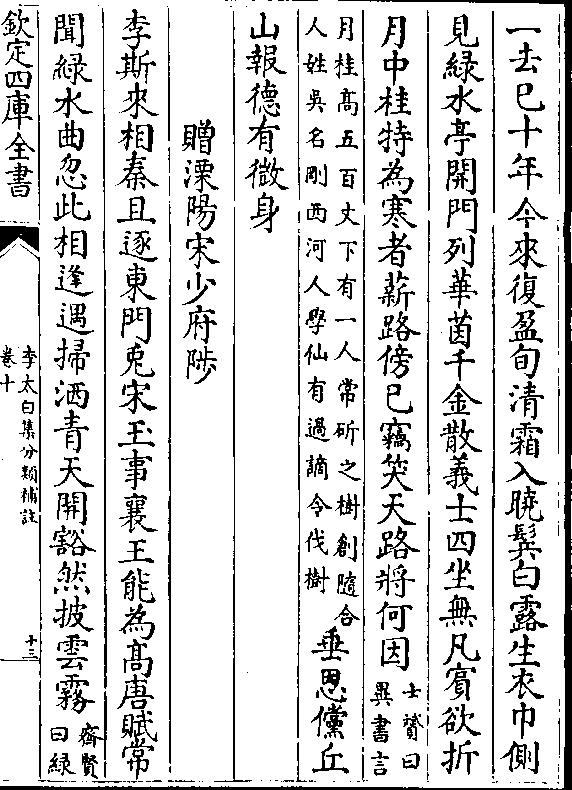 一去已十年今來復盈旬清霜入曉鬢白露生衣巾側
見緑水亭開門列華茵千金散義士四坐無凡賓欲折
月中桂特為寒者薪路傍已竊笑天路將何因
士贇曰
異書言
月桂髙五百丈下有一人常斫之樹創隨合
人姓吳名剛西河人學仙有過謫令伐樹
垂恩儻丘
山報德有微身
贈溧陽宋少府陟
李斯來相秦且逐東門兎宋玉事襄王能為髙唐賦常
聞緑水曲忽此相逢遇掃洒青天開豁然披雲霧
齊賢
曰緑
欽定四庫全書
李太白集分類補註
卷十
十三